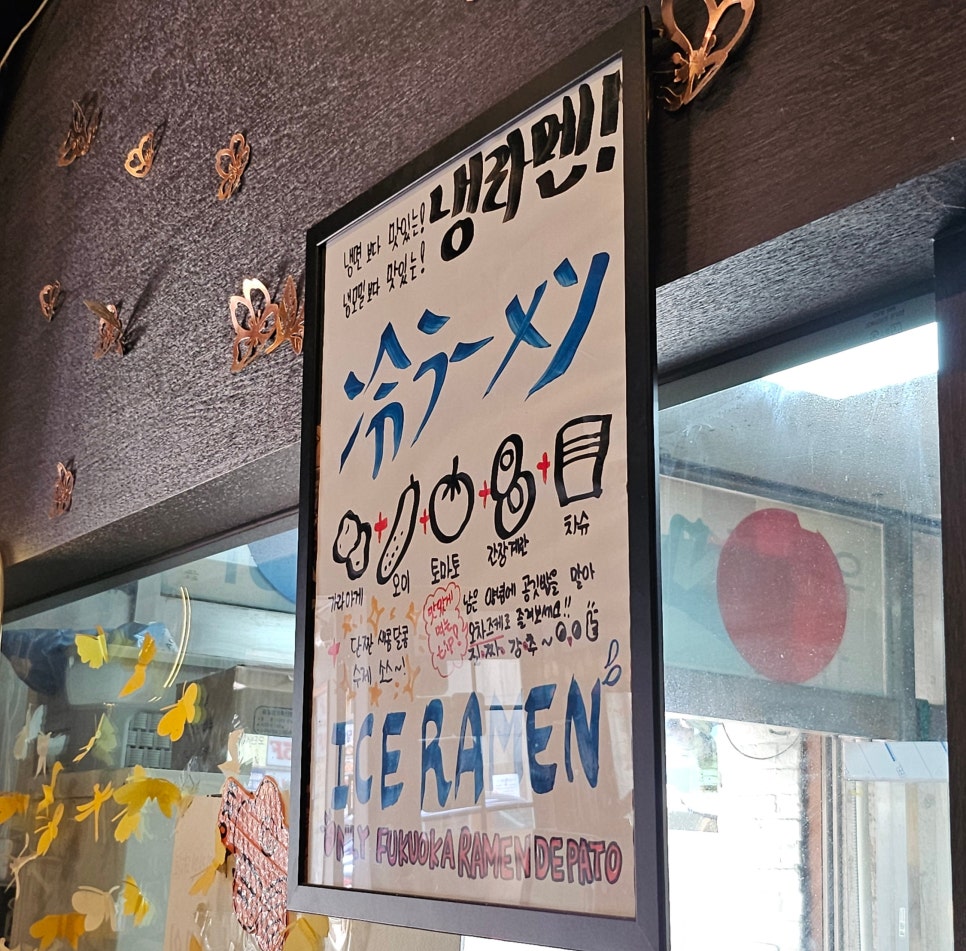 냉면 보다 맛있는!
냉모밀 보다 맛있는!
냉라멘!
冷ラーメン
가라아게 + 오이 + 토마토 + 간장계란 + 차슈
+ 단짠 새콤달콤
수제 소스~!
맛있게
먹는
tip!
남은 양념에 공깃밥을 말아
오차즈케로 즐겨보세요!!
진.짜. 강.추~
ICE RAMEN
ONLY FUKUOKA RAMEN DEPATO